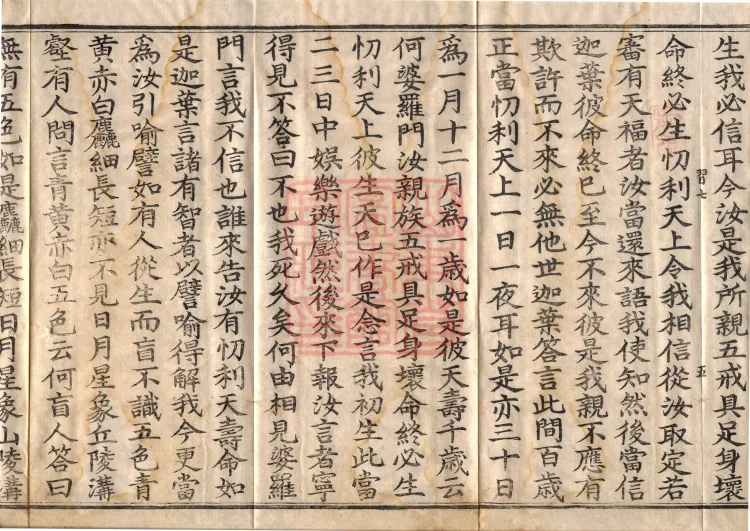 生我必信耳今汝是我所親五戒具足身壞
習七 五
命終必生忉利天上令我相信從汝取定若
審有天福者汝當還來語我使知然後當信
迦葉彼命終已至今不來彼是我親不應有
欺許而不來必無他世迦葉答言此間百歲
正當忉利天上一日一夜耳如是亦三十日
爲一月十二月爲一歲如是彼天壽千歲云
何婆羅門汝親族五戒具足身壞命終必生
忉利天上彼生天已作是念言我初生此當
二三日中娛樂遊戲然後來下報汝言者寧
得見不答曰不也我死久矣何由相見婆羅
門言我不信也誰來告汝有忉利天壽命如
是迦葉言諸有智者以譬喻得解我今更當
爲汝引喻譬如有人從生而盲不識五色青
黃赤白麤細長短亦不見日月星象丘陵溝
壑有人問言青黃赤白五色云何盲人答曰
無有五色如是麤細長短日月星象山陵溝